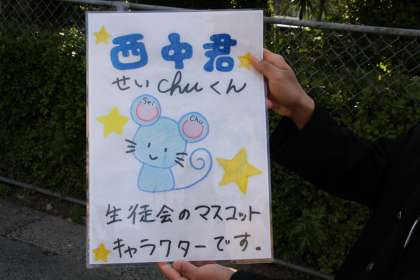 西中君
せいchuくん
Sei
Chu
生徒会のマスコット
キャラクターです。